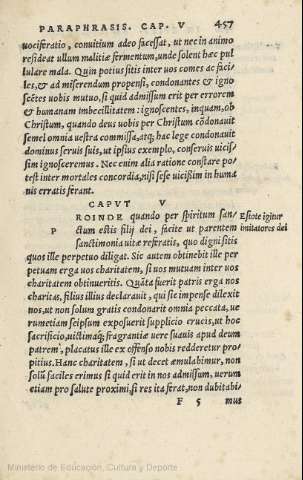 PARAPHRASIS. CAP. V 457
uociferatio, conuitium adeo facessat, ut nec in animo
resideat ullum malitiæ fermentum, unde solent hæc pul
lulare mala. Quin potius sitis inter uos comes ac faci-
les, & ad miserendum propensi, condonantes & igno
scētes uobis mutuo, si quid admissum erit per errorem
& humanam imbecillitatem: ignoscentes, inquam, ob
Christum, quando deus uobis per Christum cōdonauit
semel omnia uestra commissa, atq; hac lege condonauit
dominus seruis suis, ut ipsius exemplo, conseruis uicis-
sim ignosceremus. Nec enim alia ratione constare po-
test inter mortales concordia, nisi sese uicissim in huma
nis erratis ferant.
CAPVT V
PROINDE quando per spiritum san- Estote igitur
ctum estis filij dei, facite ut parentem imitatores dei
sanctimonia uitæ referatis, quo dignisitis
quos ille perpetuo diligat. Sic autem obtinebit ille per
petuam erga uos charitatem, si uos mutuam inter uos
charitatem obtinueritis. Quāta fuerit patris erga nos
charitas, filius illius declarauit, qui sic impense dilexit
nos, ut non solum gratis condonarit omnia peccata, ue
rumetiam seipsum exposuerit supplicio crucis, ut hoc
sacrificio, uictimaq; fragrantiæ uere suauis apud deum
patrem, placatus ille ex offenso nobis redderetur pro-
pitius. Hanc charitatem, si ut decet æmulabimur, non
solū faciles erimus si quid erit in nos admissum, uerum
etiam pro salute proximi, si res ita ferat, non dubitabi-
F 5 mus
Ministerio de Educación, Cultura y Deporte